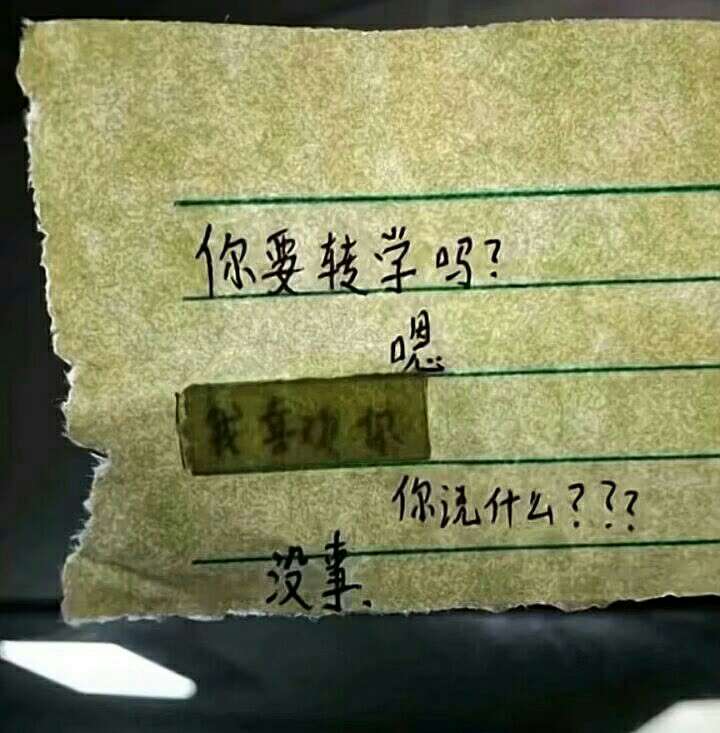 你要转学吗?
嗯
我喜欢你
你说什么???
没事.